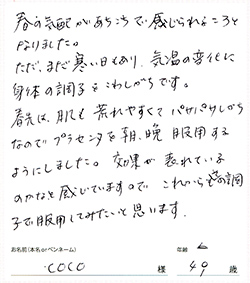 春の気配があちこちで感じられるころと
なりました。
ただ、まだ寒い日もあり、気温の変化に
身体の調子をこわしがちです。
春先は、肌も荒れやすくてパサパサしがち
なのでプラセンタを朝、晩服用する
ようにしました。効果が表れている
のかなと感じていますので、これからもこの調
子で服用してみたいと思います。
お名前(本名orペンネーム)
COCO 様
年齢
49 歳